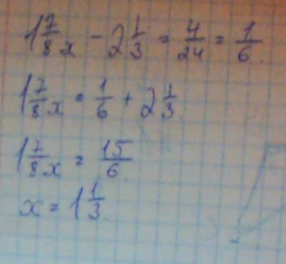 1 7/8 x - 2 1/3 = 4/24 = 1/6.
1 7/8 x = 1/6 + 2 1/3
1 7/8 x = 15/6
x = 1 1/3